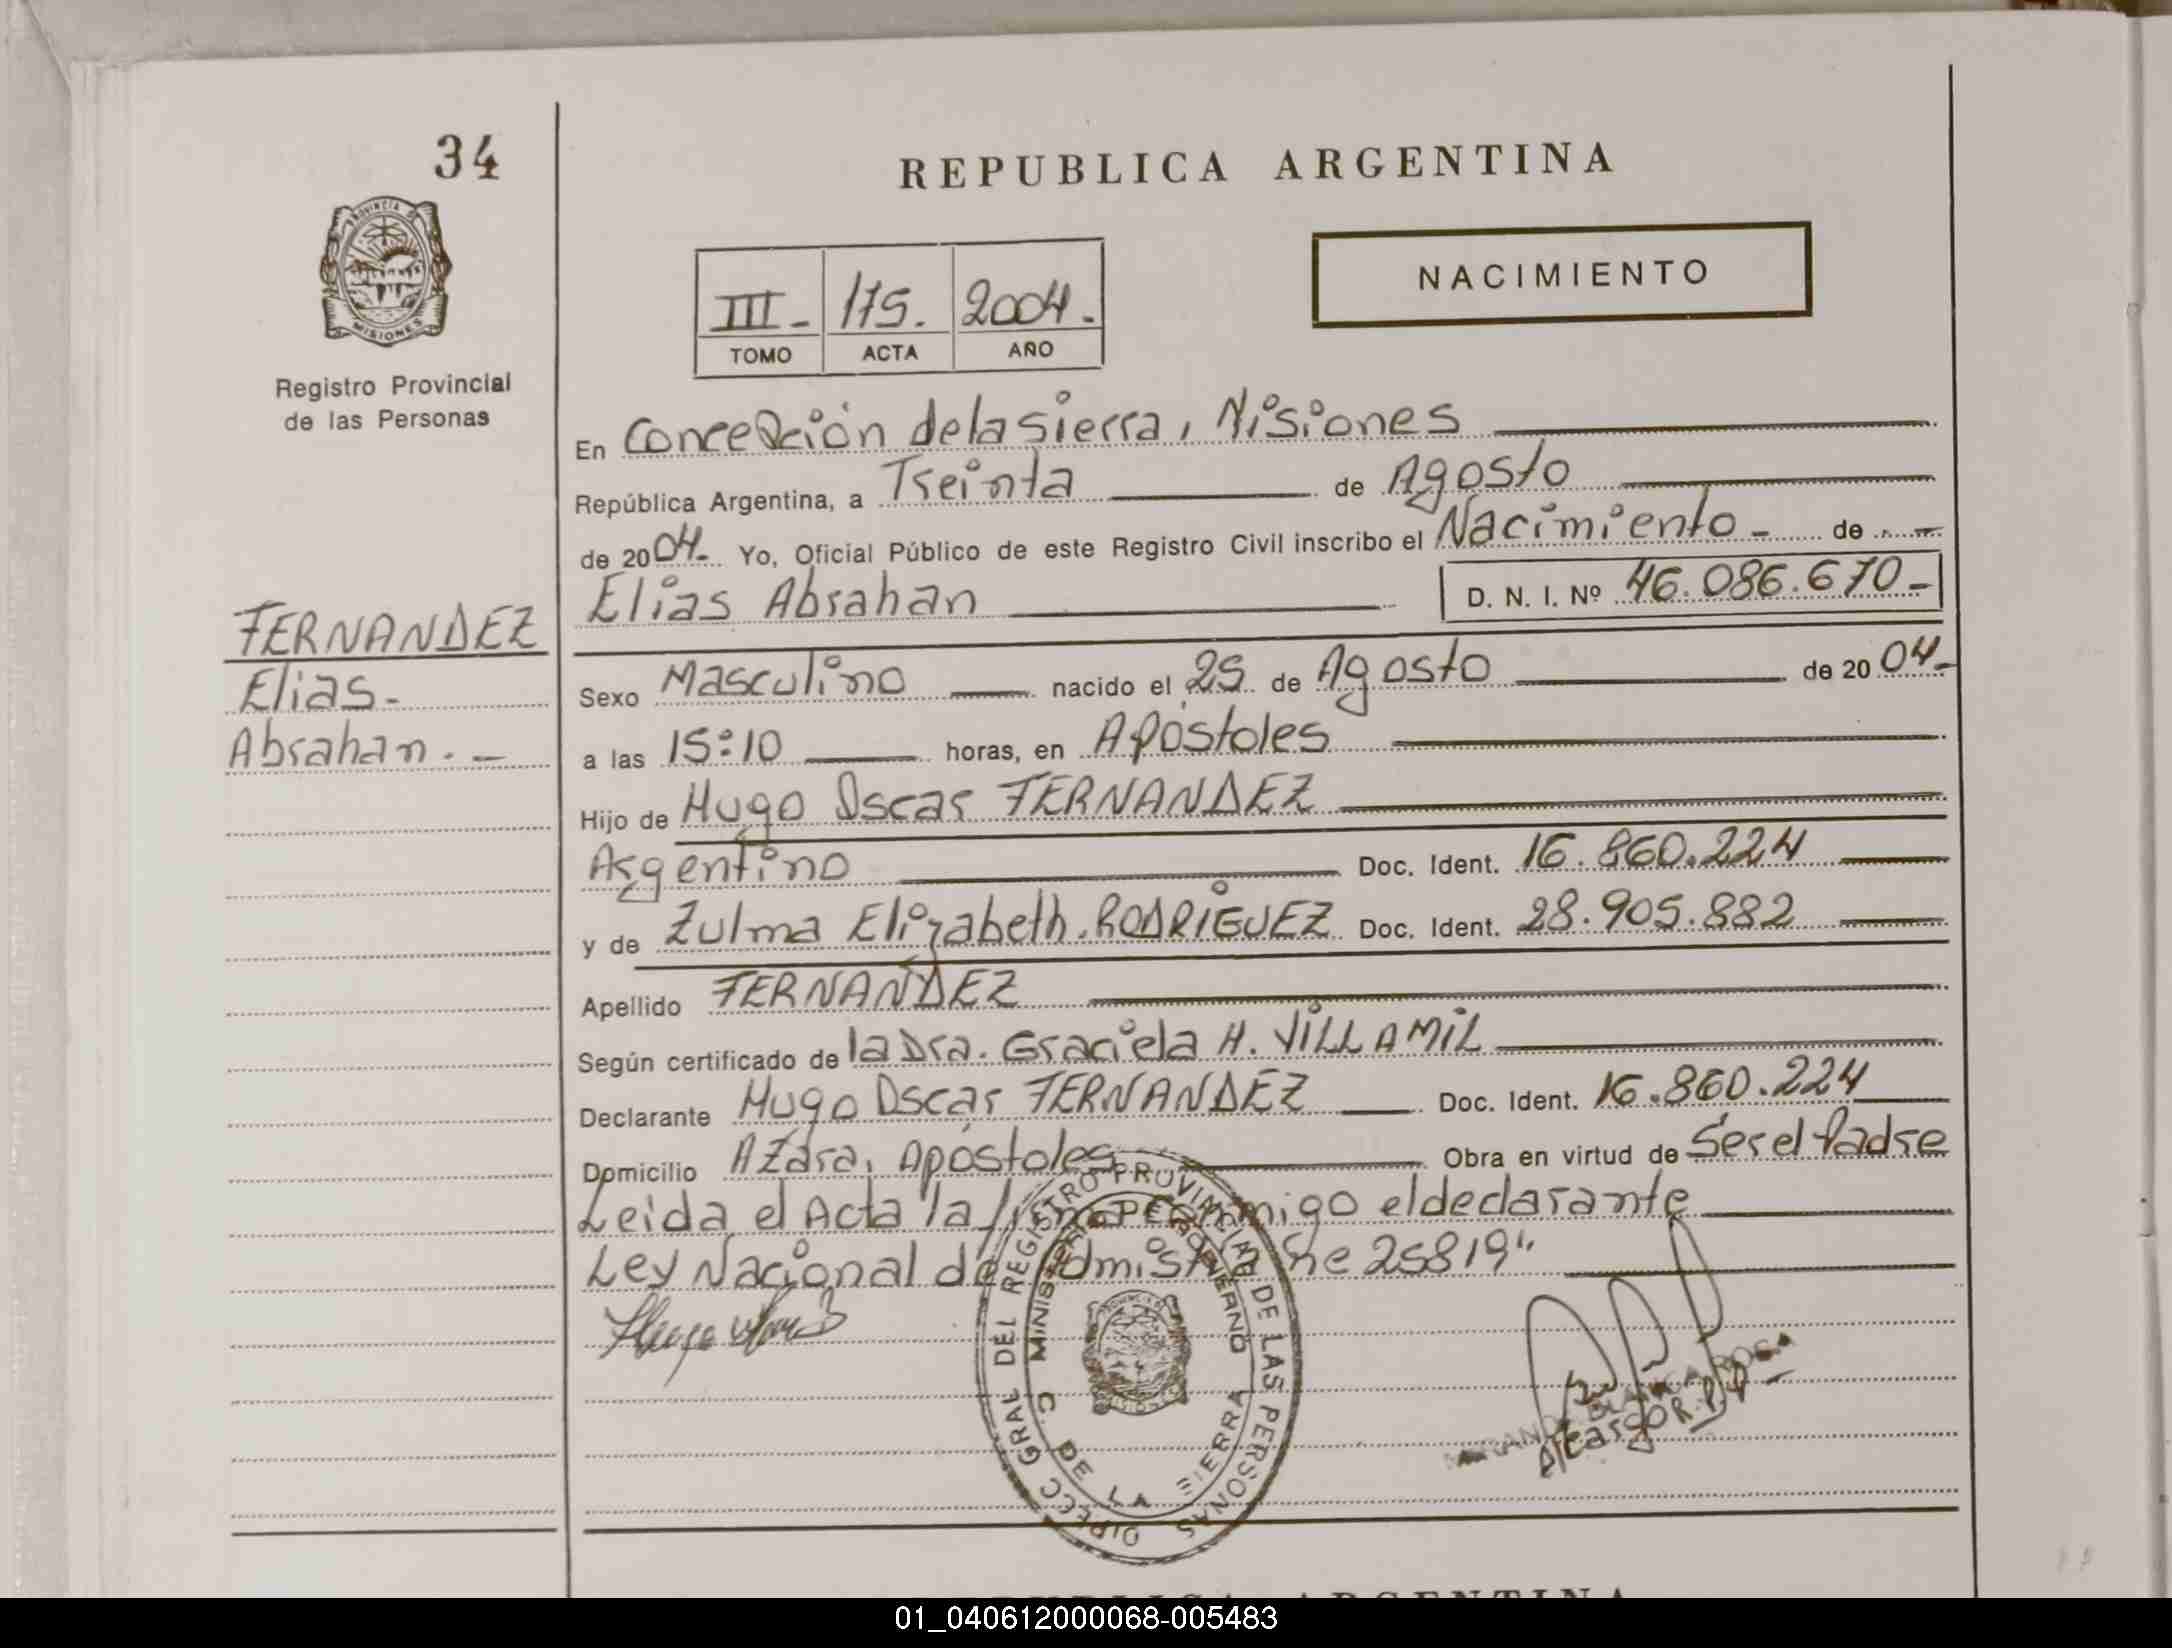 34
REPUBLICA ARGENTINA
PROVINCIA DE
MISIONES
NACIMIENTO
III - 175. 2004.-
TOMO ACTA AÑO
Registro Provincial
de las Personas
En Concepción de la Sierra, Misiones
República Argentina, a Treinta de Agosto
de 2004.- Yo, Oficial Público de este Registro Civil inscribo el Nacimiento - de
Elias Abrahan D. N. I. Nº 46.086.670-
FERNANDEZ
Elias-
Abrahan. -
Sexo Masculino nacido el 25 de Agosto de 2004-
a las 15:10 horas, en Apóstoles
Hijo de Hugo Oscar FERNANDEZ
Argentino Doc. Ident. 16.860.224
y de Zulma Elizabeth. RODRiGUEZ Doc. Ident. 28.905.882
Apellido FERNANDEZ
Según certificado de la Dra. Graciela H. ViLLAMiL
Declarante Hugo Oscar FERNANDEZ Doc. Ident. 16.860.224
Domicilio Azara, Apóstoles Obra en virtud de Ser el Padre
Leida el Acta la firma conmigo el declarante
Ley Nacional de 25819"
DIRECC GRAL DEL REGISTRO PROVINCIAL DE LAS PERSONAS
MINISTERIO DE GOBIERNO
C. DE LA SIERRA
BLANCA ROSA
A/cargo R.P.P-
REPUBLICA ARGENTINA
01_040612000068-005483